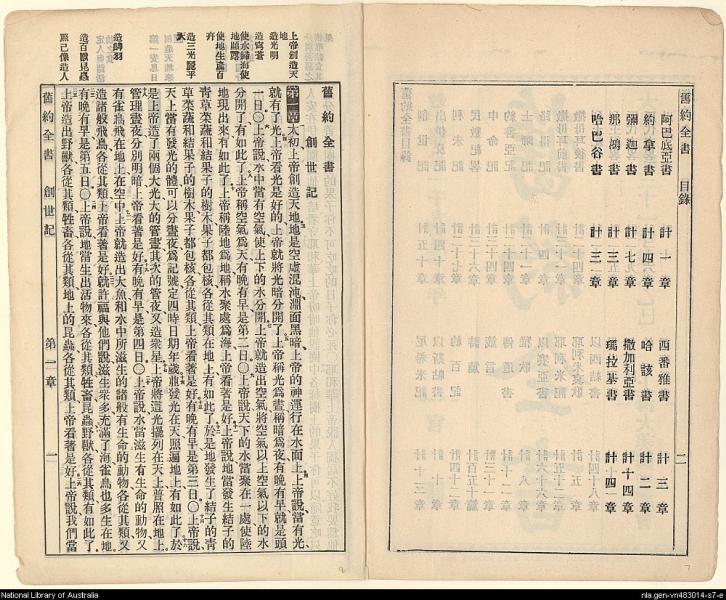 舊約全書 目錄
阿巴底亞書 計一章 西番雅書 計三章
約拿書 計四章 哈該書 計二章
彌迦書 計七章 撒加利亞書 計十四章
那鴻書 計三章 瑪拉基書 計四章
哈巴谷書 計三章
二
7
上帝創造天地
造光明
造穹蒼
使水歸海使地顯露
使地生產百卉
造百獸昆蟲
照己像造人
舊約全書
創世記
第一章 太初上帝創造天地地是空虛混沌淵面黑暗上帝的神運行在水面上上帝說當有光
就有了光上帝看光是好的上帝就將光暗分開了上帝稱光爲晝稱暗爲夜有晚有早就是頭
一日○上帝說水中當有空氣使上下的水分開上帝就造出空氣將空氣以上空氣以下的水
分開了有如此了上帝稱空氣爲天有晚有早是第二日○上帝說天下的水當聚在一處使陸
地現出來有如此了上帝稱陸地爲地稱水聚處爲海上帝看著是好上帝說地當發生結子的
青草菜蔬和結果子的樹木果子都包核各從其類在地上有如此了於是地發生了結子的青
草菜蔬和結果子的樹木果子都包核各從其類上帝看著是好有晚有早是第三日○上帝說
天上當有發光的體可以分晝夜爲記號定四時日期年歲並發光在天照遍地上有如此了於
是上帝造了兩個大光大的管晝其次的管夜又造衆星上帝將這光擺列在天上普照在地上
管理晝夜分別明暗上帝看著是好有晚有早是第四日○上帝說水當滋生有生命的動物又
有雀鳥飛在地上在空中上帝就造出大魚和水中所滋生的諸般有生命的動物各從其類又
造諸般飛鳥各從其類上帝看著是好就許福與他們說滋生衆多充滿了海雀鳥也多生在地
有晚有早是第五日○上帝說地當生出活物來各從其類牲畜昆蟲野獸各從其類有如此了
上帝造出野獸各從其類牲畜各從其類地上的昆蟲各從其類上帝看著是好上帝說我們當
舊約全書 創世記 第一章 一
National Library of Australia
nla.gen-vn483014-s7-e